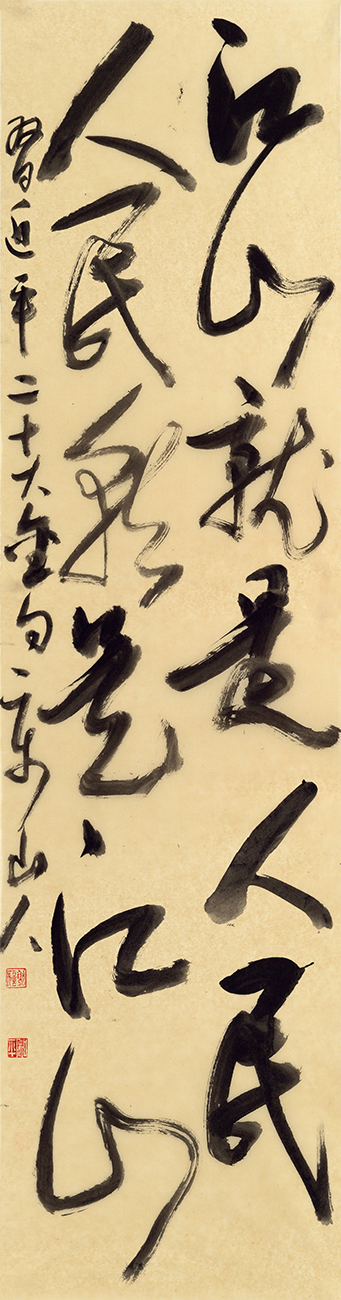 江山就是人民
人民就是江山
習近平二十大金句山人